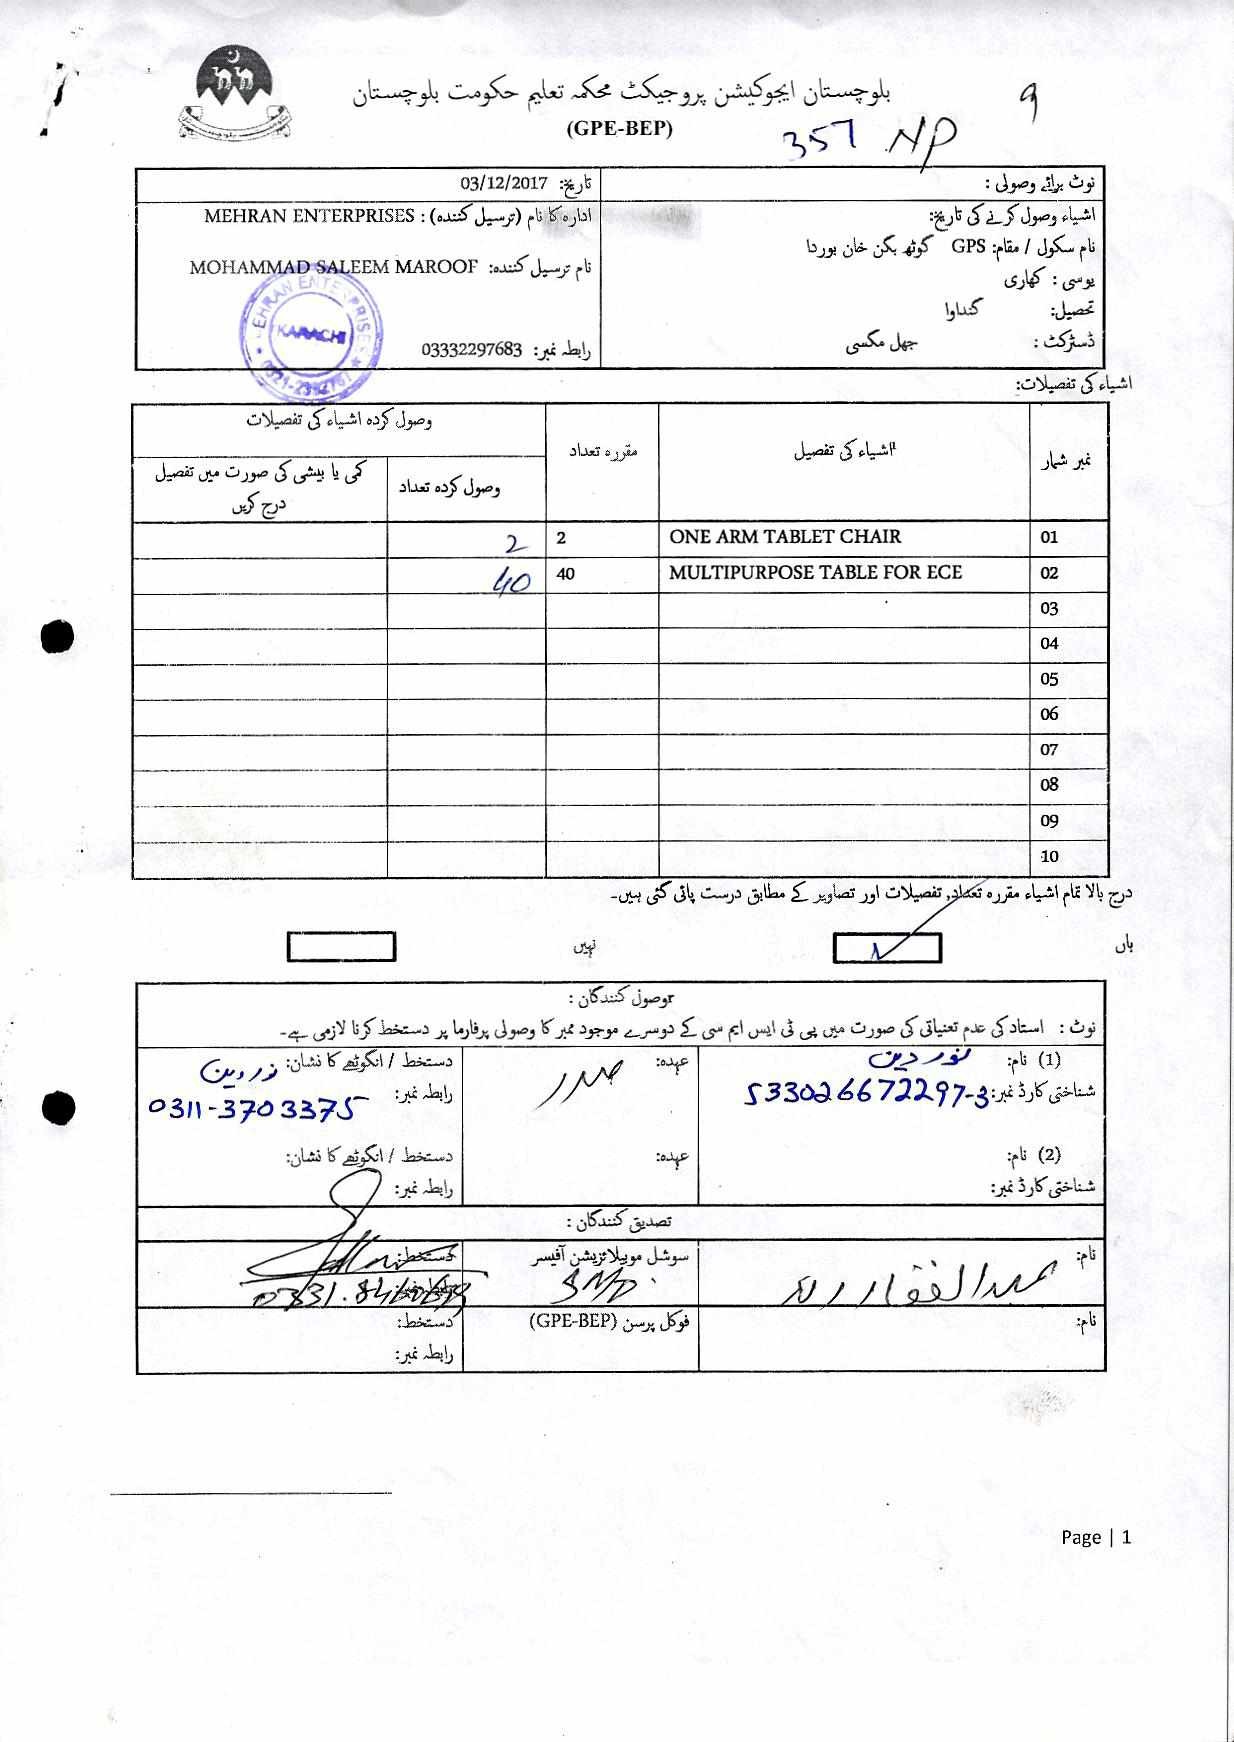 بلوچستان ایجوکیشن پروجیکٹ محکمہ تعلیم حکومت بلوچستان
(GPE-BEP)
9
357 NP
نوٹ برائے وصولی :
تاریخ: 03/12/2017
اشیاء وصول کرنے کی تاریخ:
ادارہ کا نام (ترسیل کنندہ) : MEHRAN ENTERPRISES
نام سکول / مقام: GPS گوٹھ بگن خان بوردا
نام ترسیل کنندہ: MOHAMMAD SALEEM MAROOF
یوسی : کھاری
تحصیل: گنداوا
ڈسٹرکٹ : جھل مگسی
رابطہ نمبر: 03332297683
MEHRAN ENTERPRISES
KARACHI
اشیاء کی تفصیلات:
نمبر شمار
اشیاء کی تفصیل
مقررہ تعداد
وصول کردہ اشیاء کی تفصیلات
وصول کردہ تعداد
کمی یا بیشی کی صورت میں تفصیل درج کریں
01 ONE ARM TABLET CHAIR 2 2
02 MULTIPURPOSE TABLE FOR ECE 40 40
03
04
05
06
07
08
09
10
درج بالا تمام اشیاء مقررہ تعداد, تفصیلات اور تصاویر کے مطابق درست پائی گئی ہیں۔
ہاں
نہیں
وصول کنندگان :
نوٹ : استاد کی عدم تعنیاتی کی صورت میں پی ٹی ایس ایم سی کے دوسرے موجود ممبر کا وصولی پرفارما پر دستخط کرنا لازمی ہے۔
(1) نام: نور دین
عہدہ: صدر
دستخط / انگوٹھے کا نشان: نوردین
شناختی کارڈ نمبر: 533026672297-3
رابطہ نمبر: 0311-3703375
(2) نام:
عہدہ:
دستخط / انگوٹھے کا نشان:
شناختی کارڈ نمبر:
رابطہ نمبر:
تصدیق کنندگان :
نام: عبدالغفار
سوشل موبیلائزیشن آفیسر
SMO
دستخط:
نام:
فوکل پرسن (GPE-BEP)
دستخط:
رابطہ نمبر:
Page | 1